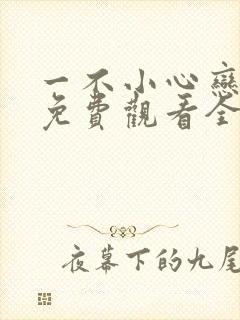 一不小心戀
免費觀看全
夜幕下的九尾